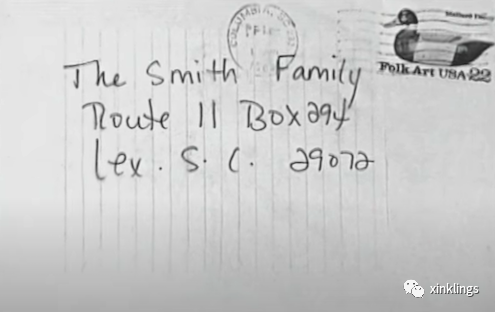 The Smith Family
Route 11 Box 294
Lex. S. C. 29072
Folk Art USA 22
xinklings